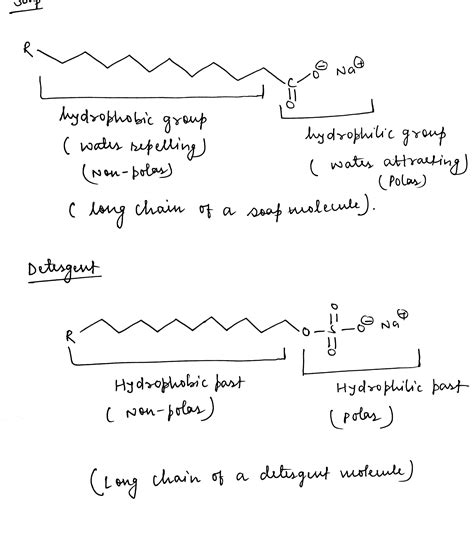 Soap
R
C
O⊖ Na⊕
O
hydrophobic group
hydrophilic group
( water repelling)
( water attracting)
(Non-polar)
(Polar)
( long chain of a soap molecule).
Detergent
R
O
O – S – O⊖ Na⊕
O
Hydrophobic part
Hydrophilic part
( Non-polar)
( polar)
(Long chain of a detergent molecule)